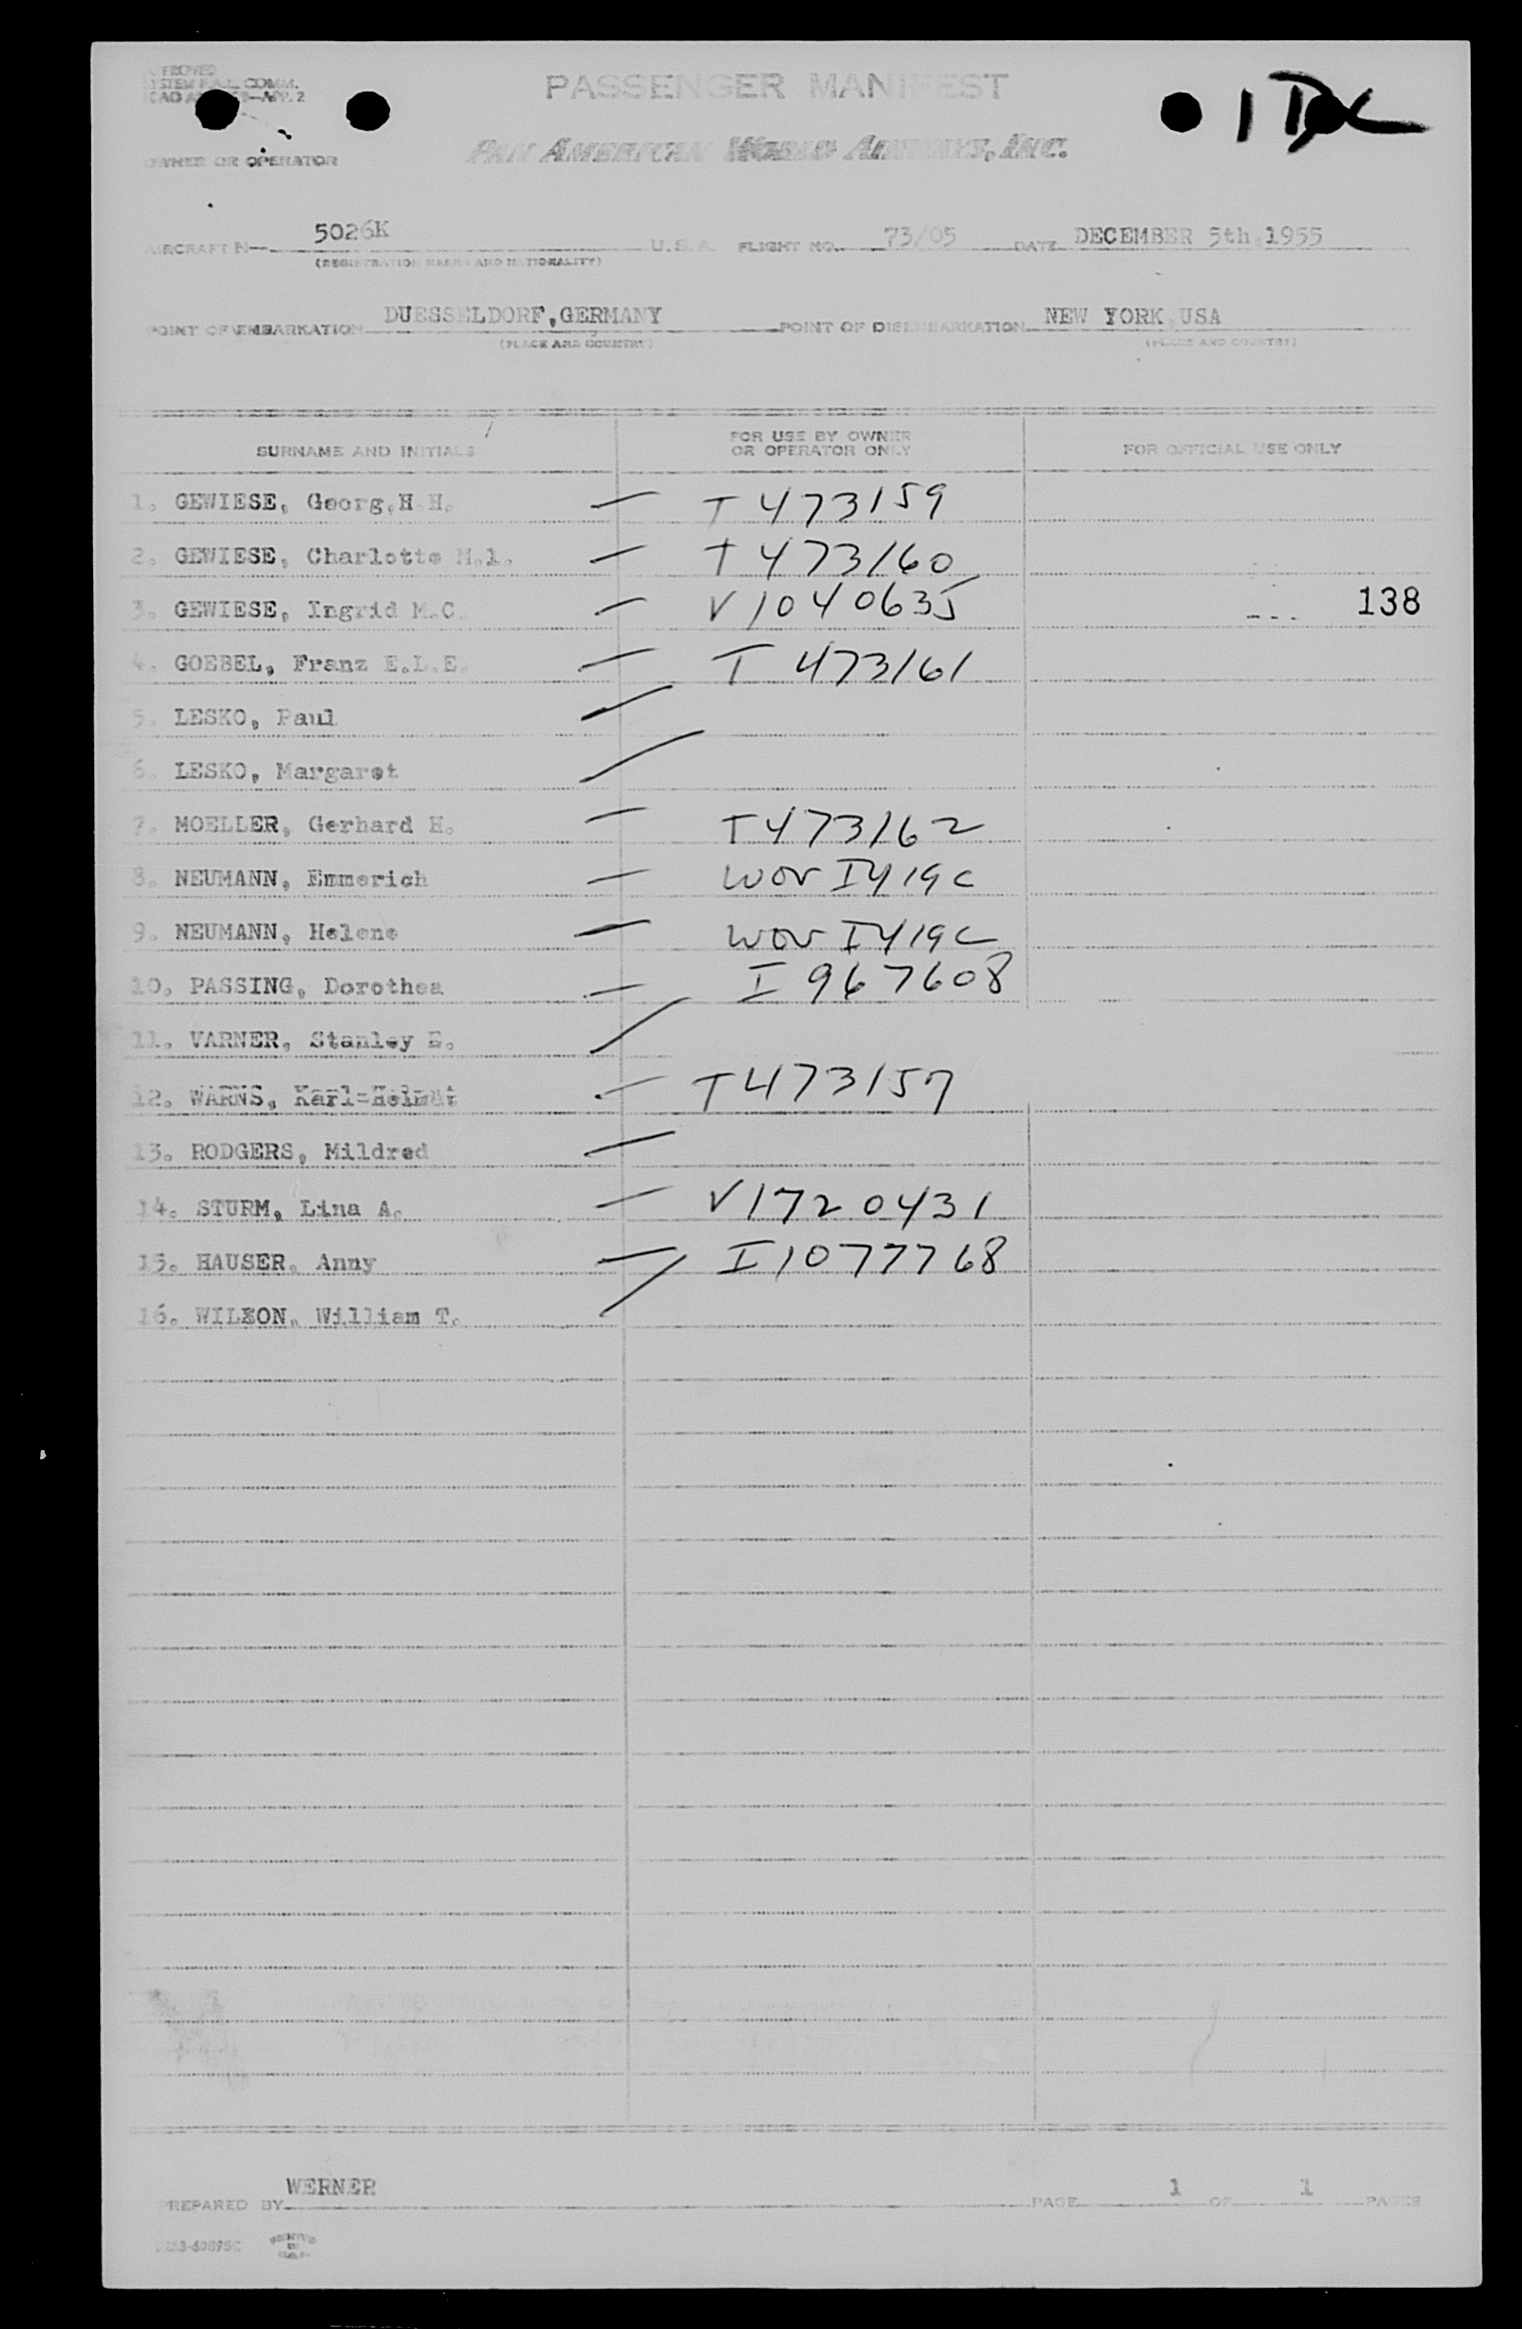 PASSENGER MANIFEST
1 DC
PAN AMERICAN WORLD AIRWAYS, INC.
OWNER OR OPERATOR
AIRCRAFT N— 5026K U.S.A. FLIGHT NO. 73/05 DATE DECEMBER 5th,1955
(REGISTRATION MARKS AND NATIONALITY)
POINT OF EMBARKATION DUESSELDORF,GERMANY POINT OF DISEMBARKATION NEW YORK,USA
(PLACE AND COUNTRY) (PLACE AND COUNTRY)
SURNAME AND INITIALS FOR USE BY OWNER OR OPERATOR ONLY FOR OFFICIAL USE ONLY
1. GEWIESE, Georg,H.H. — T 473159
2. GEWIESE, Charlotte M.l. — T 473160
3. GEWIESE, Ingrid M.C. — V 1040635 138
4. GOEBEL, Franz E.L.E. — T 473161
5. LESKO, Paul
6. LESKO, Margaret
7. MOELLER, Gerhard H. — T473162
8. NEUMANN, Emmerich — WOV I419C
9. NEUMANN, Helene — WOV I419C
10. PASSING, Dorothea — I 967608
11. VARNER, Stanley E.
12. WARNS, Karl-Helmut — T473157
13. RODGERS, Mildred —
14. STURM, Lina A. — V1720431
15. HAUSER, Anny — I1077768
16. WILSON, William T.
PREPARED BY WERNER PAGE 1 OF 1 PAGES